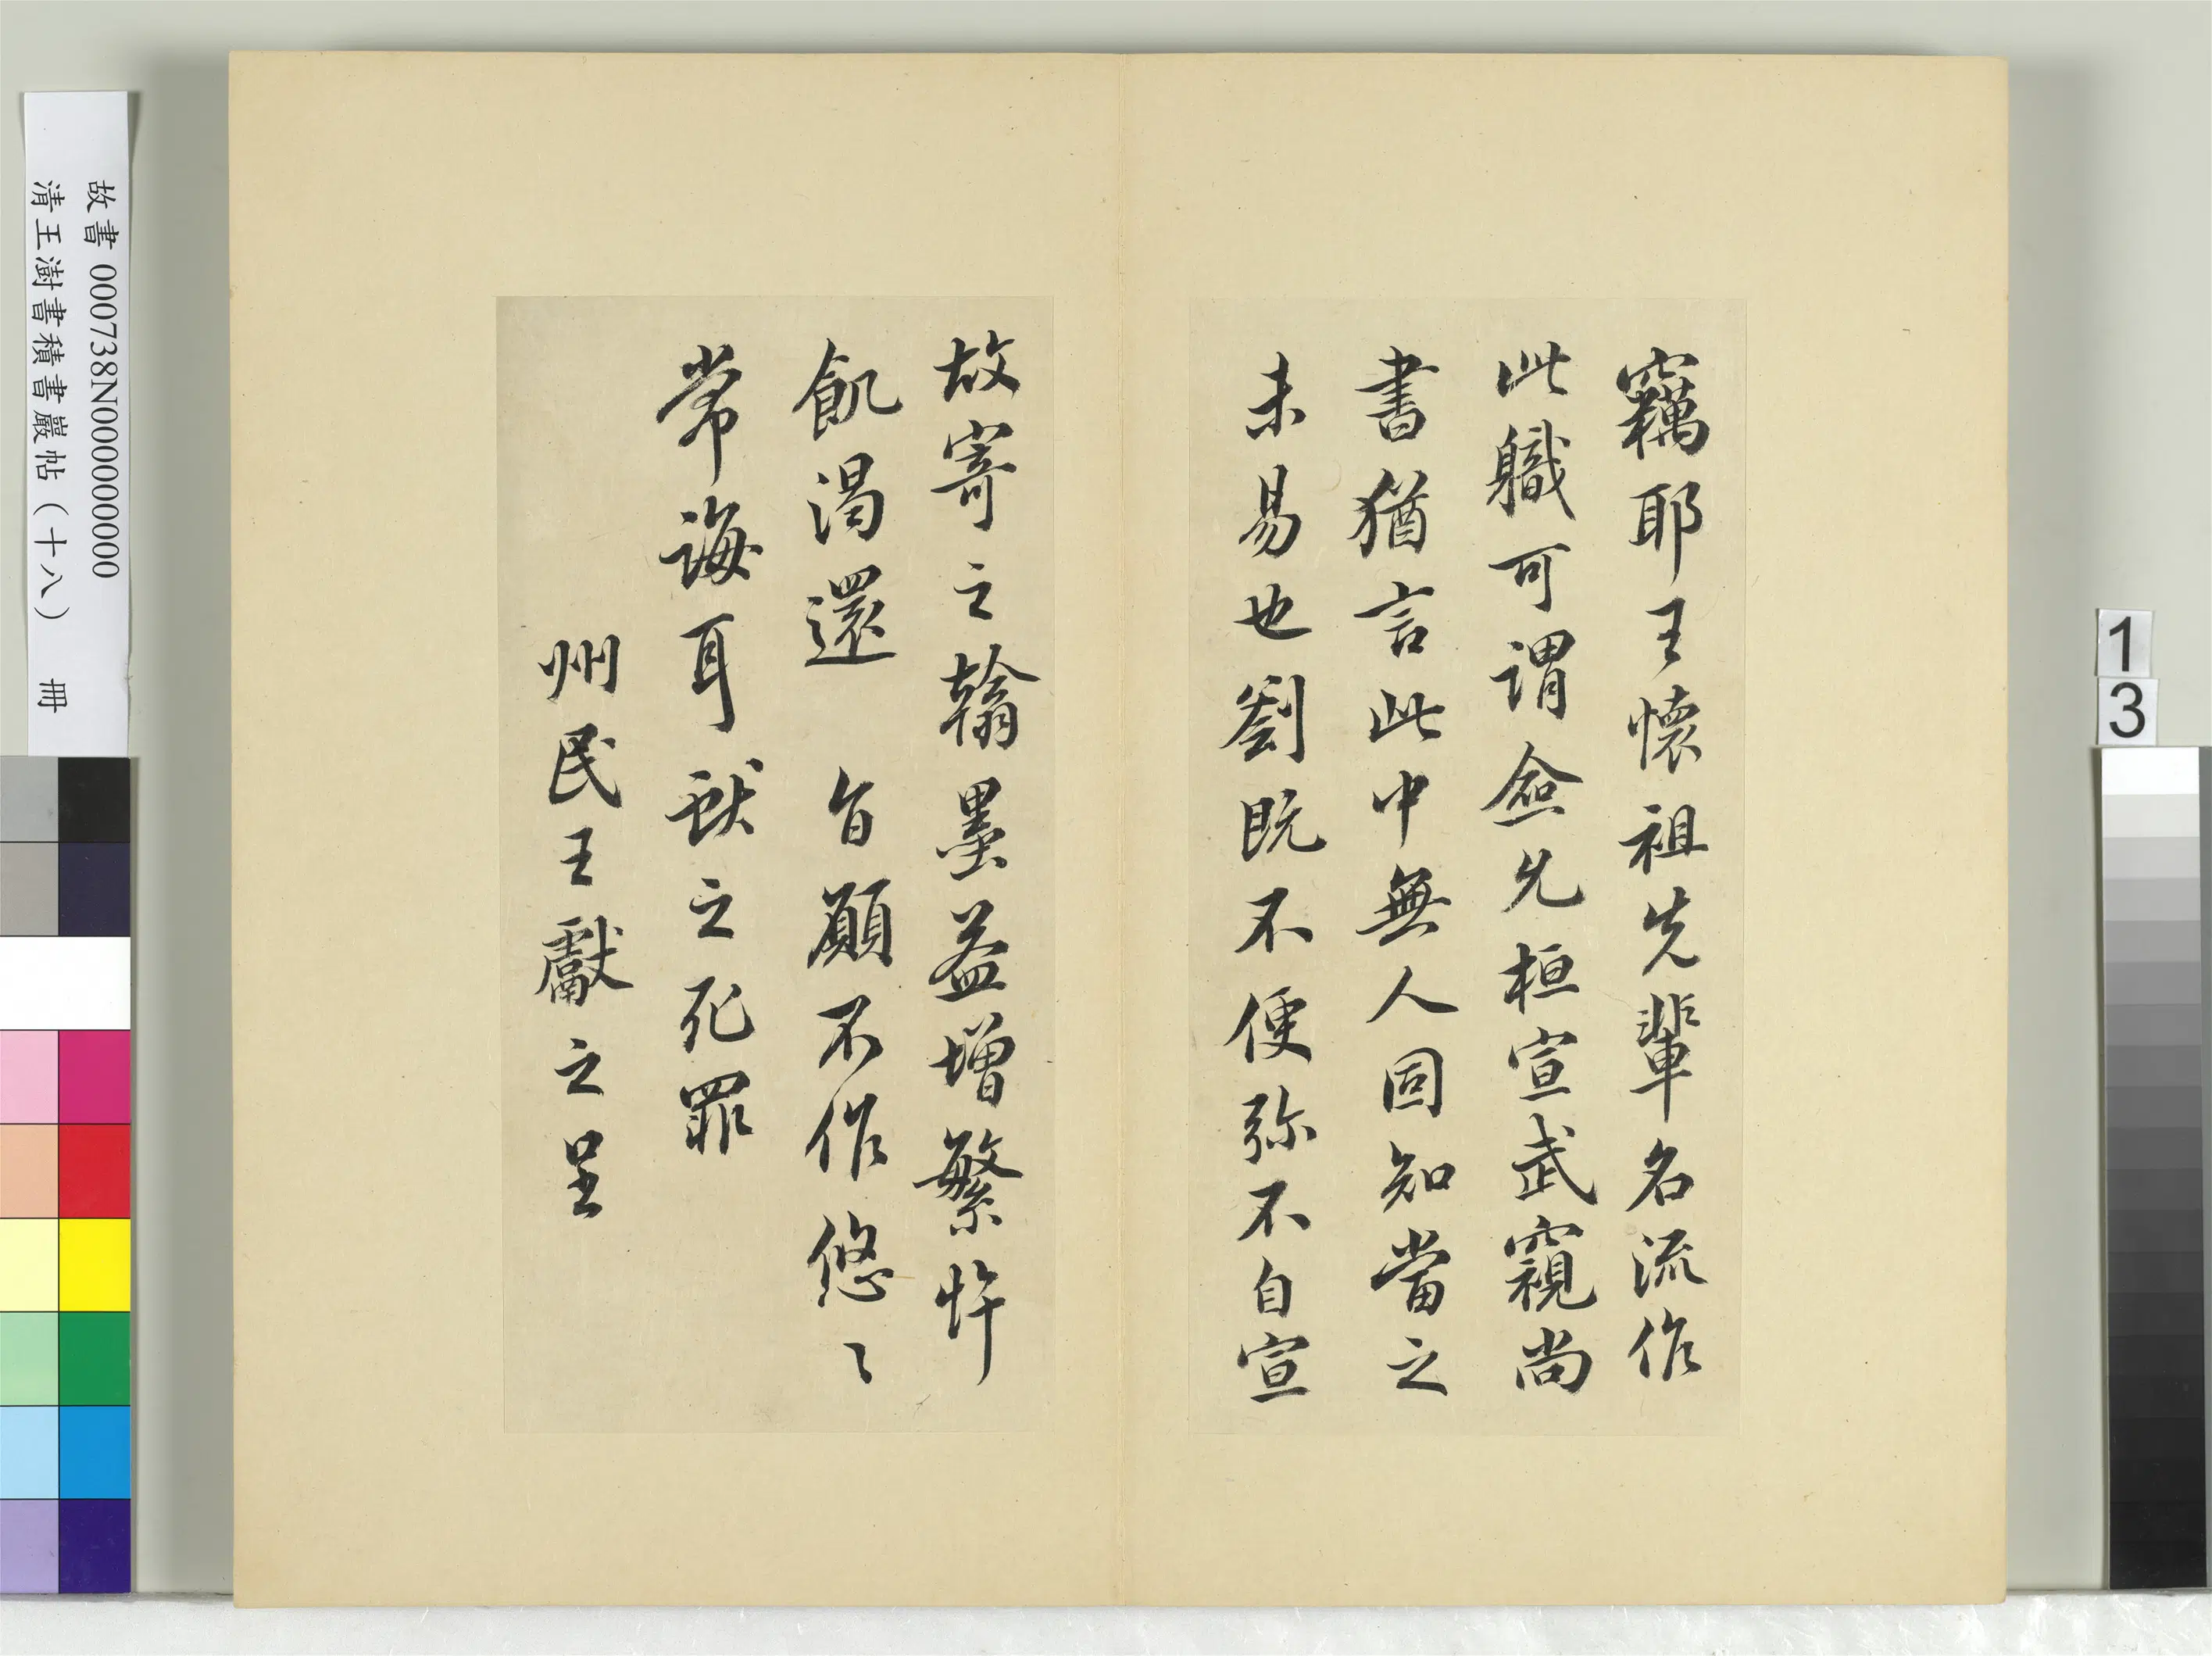 竊耶王懷祖先輩名流作
此職可謂僉允桓宣武窺尚
書猶言此中無人固知當之
未易也劉既不便弥不自宣
故寄之翰墨益增繁忤
飢渴還 旨願不作悠〻
常誨耳献之死罪
州民王獻之呈
故書 000738N000000000
清王澍書積書巖帖（十八） 冊
13